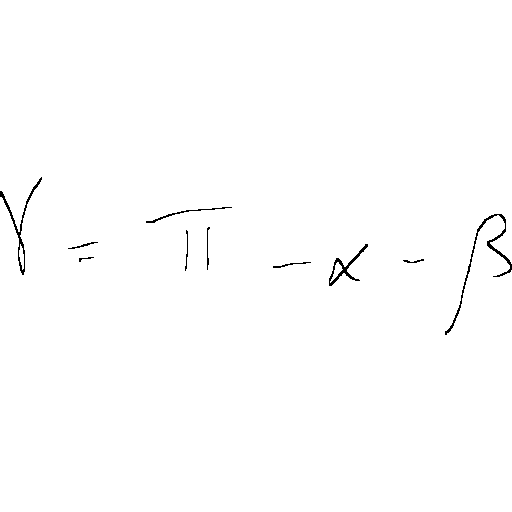 γ = π - α - β